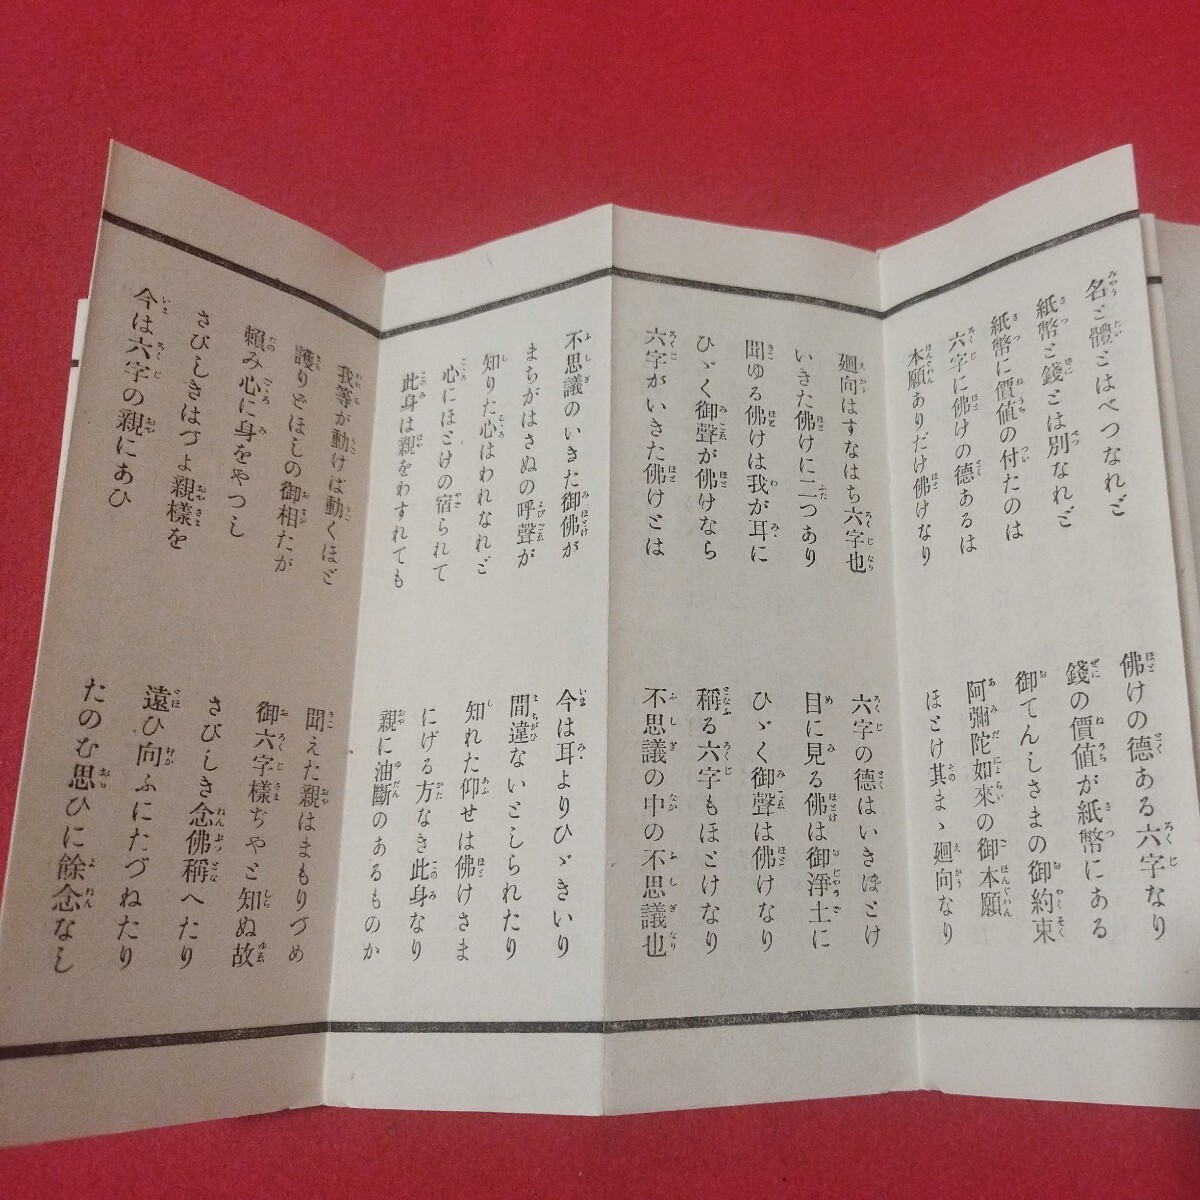 名と體とはべつなれど
佛けの德ある六字なり
紙幣と錢とは別なれど
錢の價値が紙幣にある
紙幣に價値の付たのは
御てんしさまの御約束
六字に佛けの德あるは
阿彌陀如來の御本願
本願ありだけ佛けなり
ほとけ其まゝ廻向なり
廻向はすなはち六字也
六字の德はいきぼとけ
いきた佛けに二つあり
目に見る佛は御淨土に
聞ゆる佛けは我が耳に
ひゞく御聲は佛けなり
ひゞく御聲が佛けなら
稱る六字もほとけなり
六字がいきた佛けとは
不思議の中の不思議也
不思議のいきた御佛が
今は耳よりひゞきいり
まちがはさぬの呼聲が
間違ないとしられたり
知りた心はわれなれど
知れた仰せは佛けさま
心にほとけの宿られて
にげる方なき此身なり
此身は親をわすれても
親に油斷のあるものか
我等が動けば動くほど
聞えた親はまもりづめ
護りどほしの御相たが
御六字樣ぢやと知ぬ故
賴み心に身をやつし
さびしき念佛稱へたり
さびしきはづよ親樣を
遠ひ向ふにたづねたり
今は六字の親にあひ
たのむ思ひに餘念なし